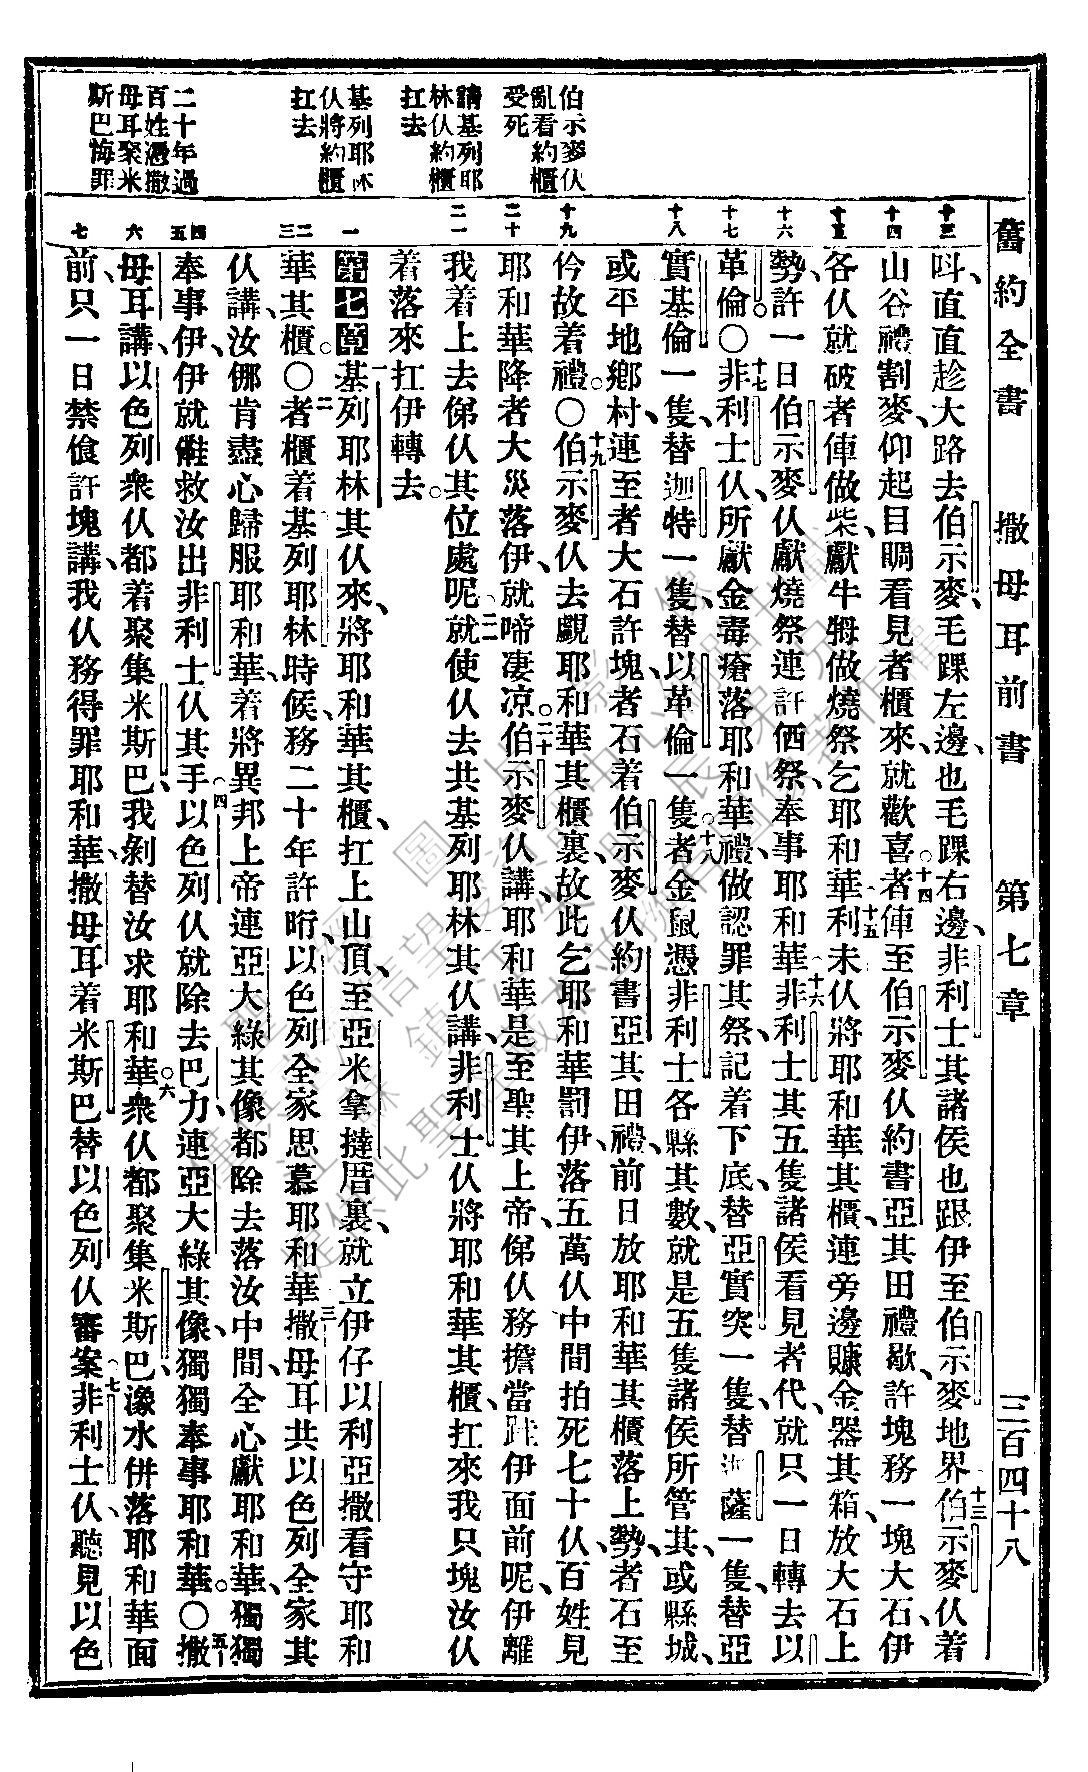 舊約全書 撒母耳前書 第七章 三百四十八
伯示麥仈
亂看約櫃
受死
請基列耶
林仈約櫃
扛去
基列耶林
仈將約櫃
扛去
二十年過
百姓憑撒
母耳聚米
斯巴悔罪
十三 十四 十五 十六 十七 十八 十九 二十 二一 一 二 三 四 五 六 七
呌、直直趁大路去伯示麥、毛踝左邊、也毛踝右邊、非利士其諸侯也跟伊至伯示麥地界十三伯示麥仈着
山谷禮割麥、仰起目睭看見者櫃來、就歡喜○十四者俥至伯示麥仈約書亞其田禮歇、許塊務一塊大石、伊
各仈就破者俥做柴、獻牛牳做燒祭乞耶和華、十五利未仈將耶和華其櫃、連旁邊賺金器其箱、放大石上
勢、許一日伯示麥仈獻燒祭連許仈祭、奉事耶和華、十六非利士其五隻諸侯看見者代、就只一日轉去以
革倫。○十七非利士仈、所獻金毒瘡落耶和華禮、做認罪其祭記着下底、替亞實突一隻、替迦薩一隻、替亞
實基倫一隻、替迦特一隻、替以革倫一隻。十八者金鼠憑非利士各縣其數、就是五隻諸侯所管其、或縣城、
或平地鄉村、連至者大石許塊、者石着伯示麥仈約書亞其田禮、前日放耶和華其櫃落上勢、者石至
仱故着禮。○十九伯示麥仈去覷耶和華其櫃裏、故此乞耶和華罰伊、落五萬仈中間拍死七十仈、百姓見
耶和華降者大災落伊、就啼凄凉。二十伯示麥仈講、耶和華是至聖其上帝、俤仈務擔當跓伊面前呢、伊離
我着上去俤仈其位處呢、二一就使仈去共基列耶林其仈講、非利士仈將耶和華其櫃、扛來我只塊、汝仈
着落來扛伊轉去。
第七章 一基列耶林其仈來、將耶和華其櫃、扛上山頂、至亞米拿撻厝裏、就立伊仔以利亞撒看守耶和
華其櫃。○二者櫃着基列耶林時候、務二十年許晌、以色列全家思慕耶和華、三撒母耳共以色列全家其
仈講、汝倻肯盡心歸服耶和華、着將異邦上帝連亞大綠其像都除去落汝中間、全心獻耶和華、獨獨
奉事伊、伊就救汝出非利士仈其手、四以色列仈就除去巴力連亞大綠其像、獨獨奉事耶和華。○五撒
母耳講、以色列衆仈都着聚集米斯巴、我剝替汝求耶和華。○六衆仈都聚集米斯巴、㵢水併落耶和華面
前、只一日禁食、許塊講、我仈務得罪耶和華、撒母耳着米斯巴替以色列仈審案、七非利士仈、聽見以色